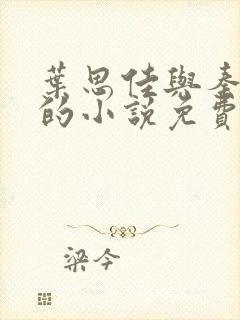 葉思佳與秦
的小說免費
梁今